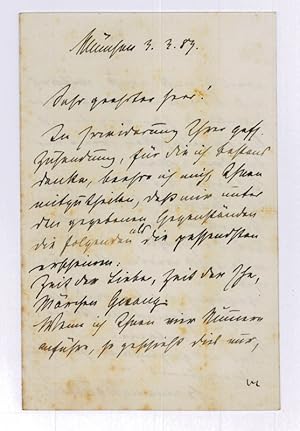 München 3. 3. 89.
Sehr geehrter Herr!
In Erwiderung Ihrer gefl.
Zusendung, für die ich bestens
danke, beehre ich mich Ihnen
mitzutheilen, daß mir unter
den gegebenen Gegenständen
die folgenden als die passendsten
erscheinen:
Zeit der Liebe, Zeit der Ehe,
Märchen, Gesang.
Wenn ich Ihnen vier Nummern
anführe, so geschieht dies nur,